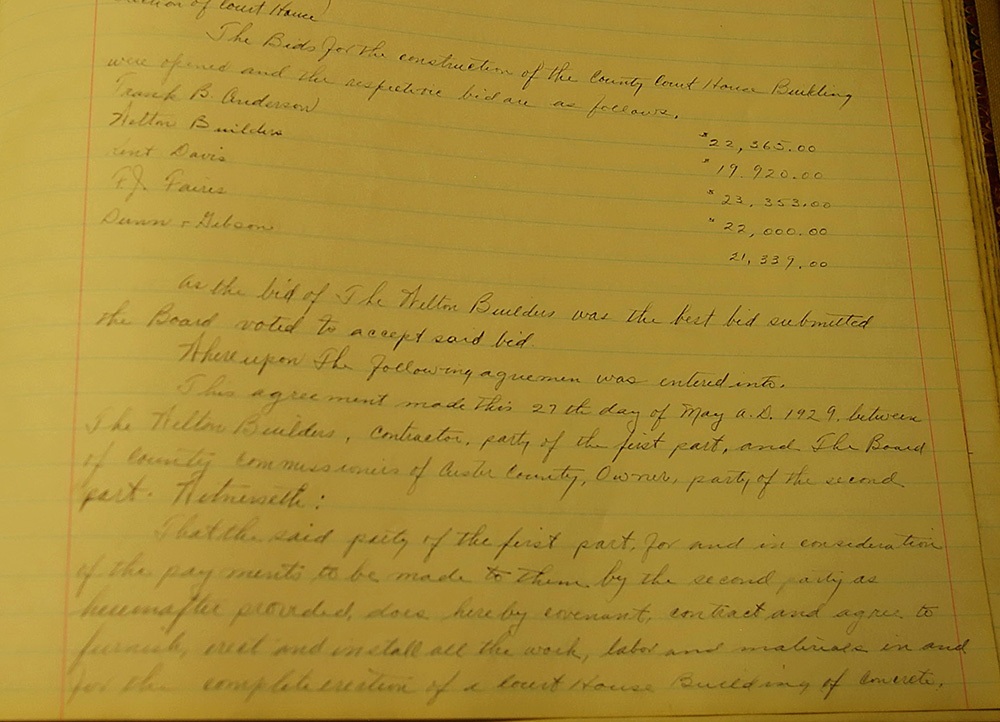 ection of Court House)
The Bids for the construction of the County Court House Building
were opened and the respective bid are as follows.
Frank B. Anderson $22,365.00
Welton Builders $19.920.00
Davis $23,353.00
F.J. Faires $22,000.00
Dunn & Gibson 21,339.00
as the bid of The Welton Builders was the best bid submitted
the Board voted to accept said bid
Whereupon The following agreemen was entered into.
This agreement made this 27th day of May A.D. 1929. between
The Welton Builders, contractor, party of the first part, and The Board
of County Commissioners of Custer County, Owner, party of the second
part. Witnesseth:
That the said party of the first part, for and in consideration
of the payments to be made to them by the second party as
hereinafter provided, does hereby covenant, contract and agree to
furnish, erect and install all the work, labor and materials in and
for the complete erection of a Court House Building of Concrete,